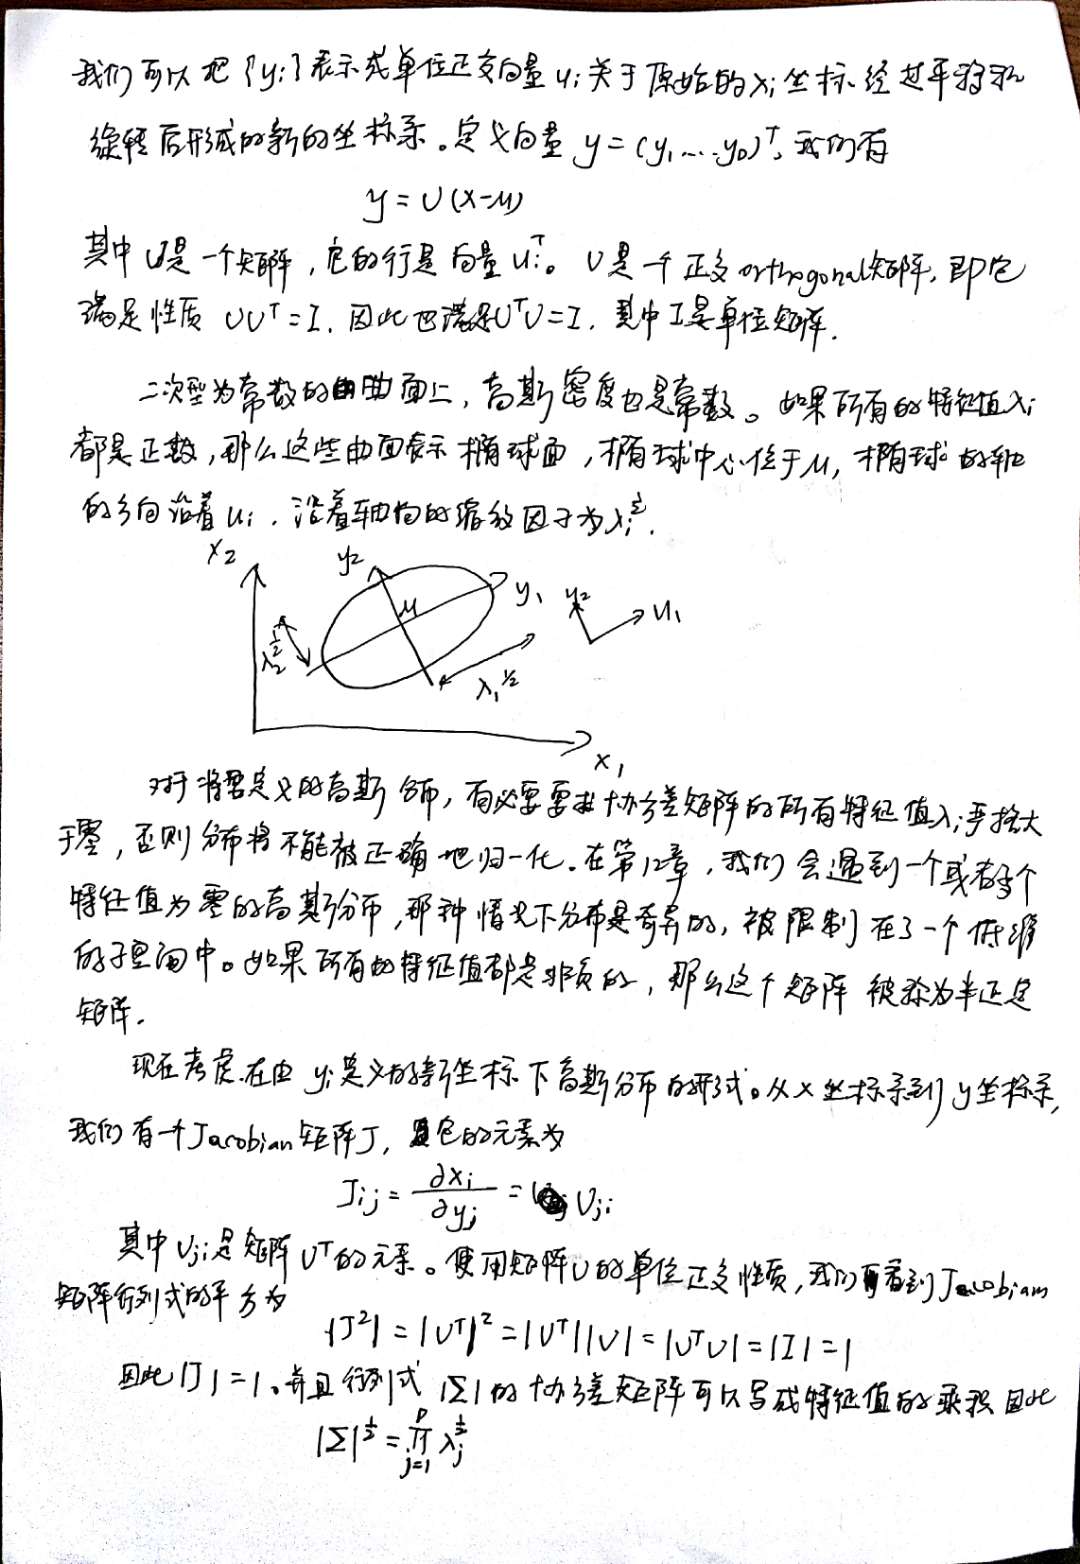 我们可以把{yi}表示成单位正交向量ui关于原始的xi坐标经过平移和
旋转后形成的新的坐标系。定义向量 y=(y₁,...y_D)ᵀ, 我们有
y=U(x-μ)
其中U是一个矩阵,它的行是向量uᵢᵀ。U是一个正交orthogonal矩阵,即它
满足性质 UUᵀ=I. 因此也满足UᵀU=I. 其中I是单位矩阵.
二次型为常数的曲面上,高斯密度也是常数。如果所有的特征值λi
都是正数,那么这些曲面表示椭球面,椭球中心位于μ,椭球的轴
的方向沿着ui. 沿着轴向的缩放因子为λi^½.
x₂
y₂
μ
y₁
u₁
λ₂^½
λ₁^½
x₁
对于将要定义的高斯分布,有必要要求协方差矩阵的所有特征值λi严格大
于零,否则分布将不能被正确地归一化.在第12章,我们会遇到一个或者多个
特征值为零的高斯分布,那种情况下分布是奇异的,被限制在了一个低维
的子空间中。如果所有的特征值都是非负的,那么这个矩阵被称为半正定
矩阵.
现在考虑.在由yi定义的新坐标下高斯分布的形式。从x坐标系到y坐标系,
我们有一个Jacobian矩阵J, 它的元素为
Jij = ∂xi/∂yj = Uji
其中Uji是矩阵Uᵀ的元素。使用矩阵U的单位正交性质,我们看到Jacobian
矩阵行列式的平方为
|J²|=|Uᵀ|²=|Uᵀ||U|=|UᵀU|=|I|=1
因此|J|=1。并且行列式|Σ|的协方差矩阵可以写成特征值的乘积因此
|Σ|^½ = ∏_{j=1}^{D} λj^½